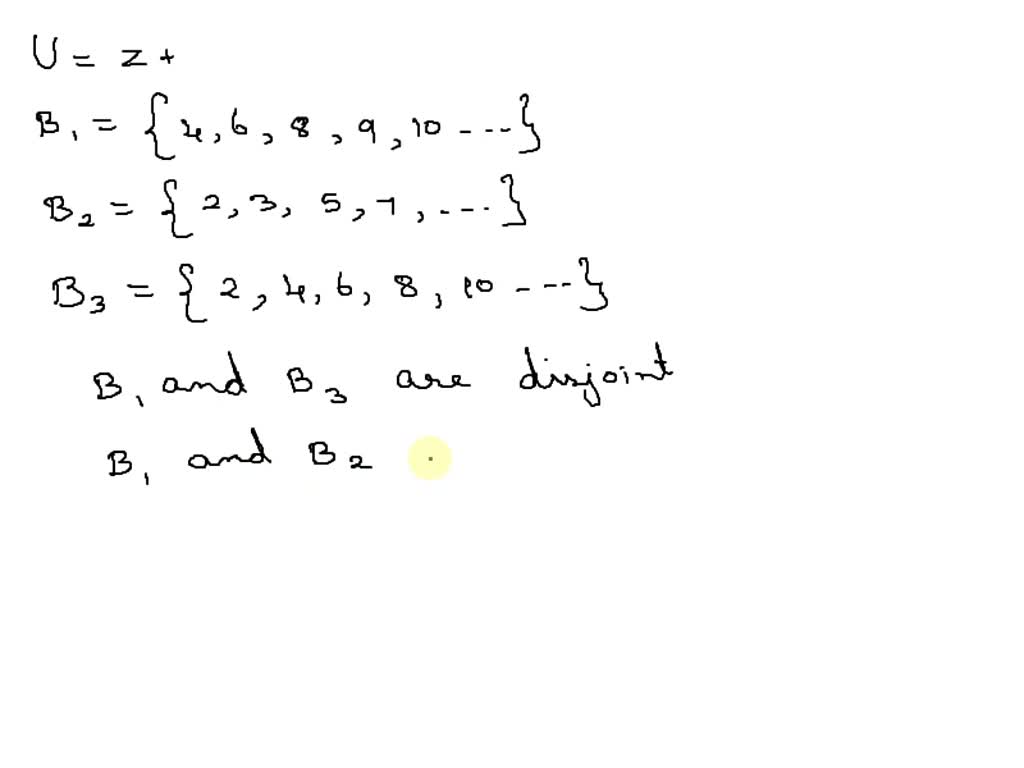 U = Z+
B₁ = {4, 6, 8, 9, 10 ----}
B₂ = {2, 3, 5, 7, ----}
B₃ = {2, 4, 6, 8, 10 ----}
B₁ and B₃ are disjoint
B₁ and B₂